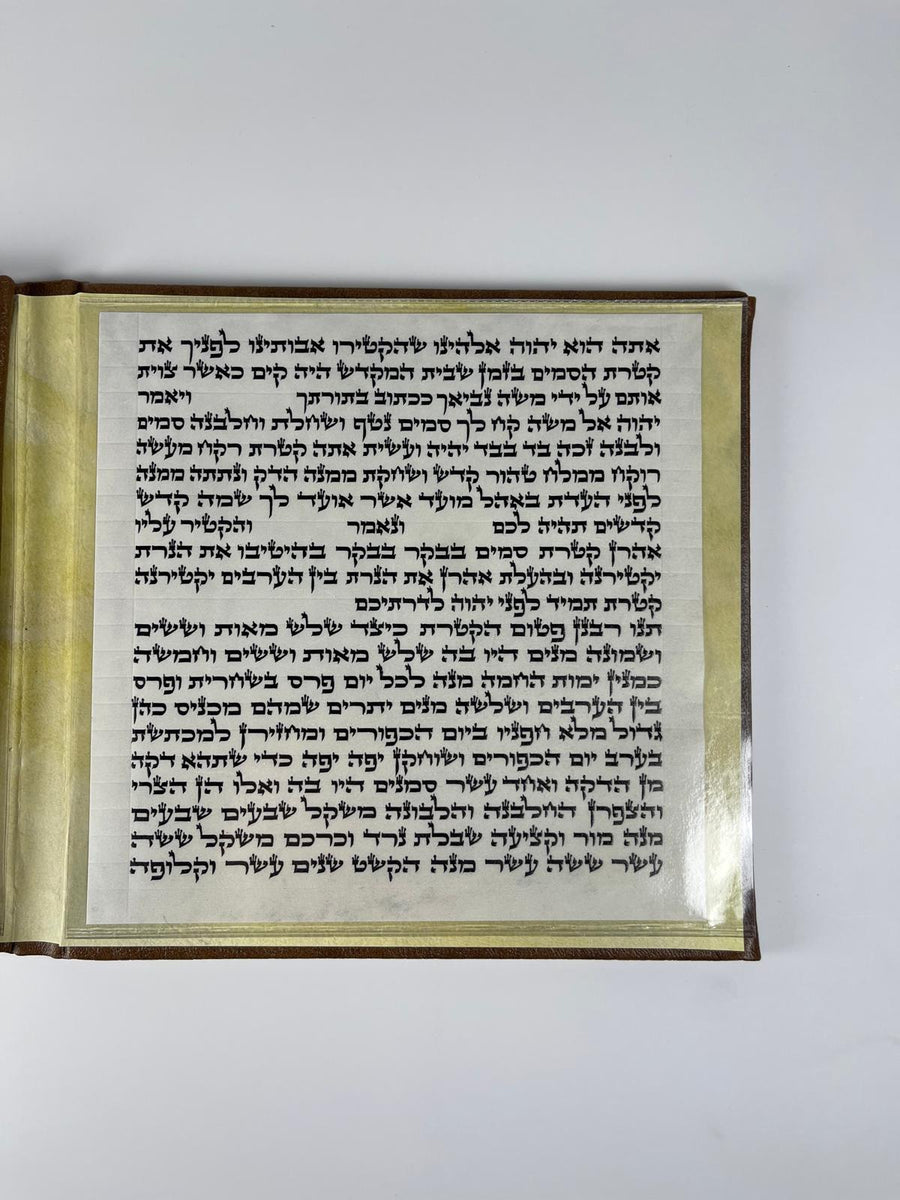 אתה הוא יהוה אלהינו שהקטירו אבותינו לפניך את
קטרת הסמים בזמן שבית המקדש היה קים כאשר צוית
אותם על ידי משה נביאך ככתוב בתורתך ויאמר
יהוה אל משה קח לך סמים נטף ושחלת וחלבנה סמים
ולבנה זכה בד בבד יהיה ועשית אתה קטרת רקח מעשה
רוקח ממלח טהור קדש ושחקת ממנה הדק ונתתה ממנה
לפני העדת באהל מועד אשר אועד לך שמה קדש
קדשים תהיה לכם ונאמר והקטיר עליו
אהרן קטרת סמים בבקר בבקר בהיטיבו את הנרת
יקטירנה ובהעלת אהרן את הנרת בין הערבים יקטירנה
קטרת תמיד לפני יהוה לדרתיכם
תנו רבנן פטום הקטרת כיצד שלש מאות וששים
ושמונה מנים היו בה שלש מאות וששים וחמשה
כמנין ימות החמה מנה לכל יום פרס בשחרית ופרס
בין הערבים ושלשה מנים יתרים שמהם מכניס כהן
גדול מלא חפניו ביום הכפורים ומחזירן למכתשת
בערב יום הכפורים ושוחקן יפה יפה כדי שתהא דקה
מן הדקה ואחד עשר סמנים היו בה ואלו הן הצרי
והצפרן החלבנה והלבונה משקל שבעים שבעים
מנה מור וקציעה שבלת נרד וכרכם משקל ששה
עשר ששה עשר מנה הקשט שנים עשר וקלופה